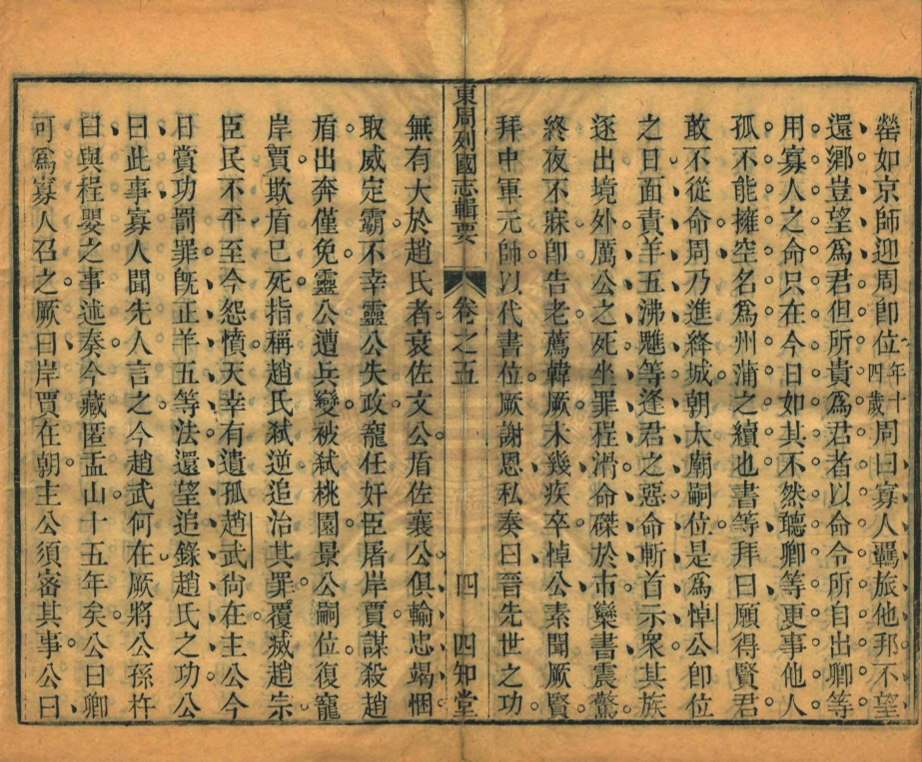 罃如京師迎周卽位年十四歲周曰寡人羈旅他邦不望
還鄉豈望爲君但所貴爲君者以命令所自出卿等
用寡人之命只在今日如其不然聽卿等更事他人
孤不能擁空名爲州蒲之續也書等拜曰願得賢君
敢不從命周乃進絳城朝太廟嗣位是爲悼公卽位
之日面責羊五沸魋等逢君之惡命斬首示衆其族
逐出境外厲公之死坐罪程滑命磔於市欒書震驚
終夜不寐卽告老薦韓厥未幾疾卒悼公素聞厥賢
拜中軍元帥以代書位厥謝恩私奏曰晉先世之功
東周列國志輯要 卷之五 四 四知堂
無有大於趙氏者衰佐文公盾佐襄公俱輸忠竭悃
取威定霸不幸靈公失政寵任奸臣屠岸賈謀殺趙
盾出奔僅免靈公遭兵變被弒桃園景公嗣位復寵
岸賈欺盾已死指稱趙氏弒逆追治其罪覆滅趙宗
臣民不平至今怨憤天幸有遺孤趙武尙在主公今
日賞功罰罪旣正羊五等法還望追錄趙氏之功公
曰此事寡人聞先人言之今趙武何在厥將公孫杵
臼與程嬰之事述奏今藏匿盂山十五年矣公曰卿
可爲寡人召之厥曰岸賈在朝主公須審其事公曰